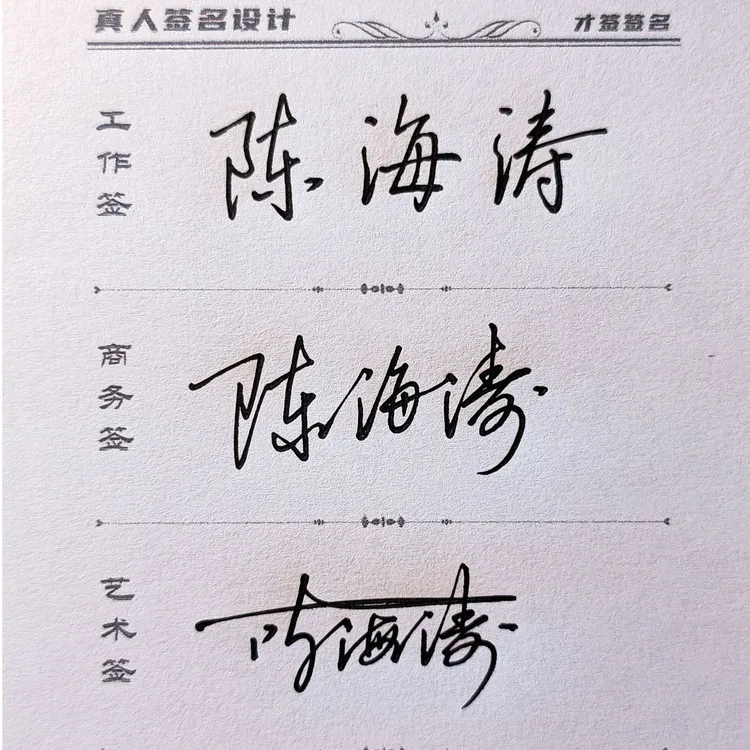 真人签名设计 才签签名
工作签 陈海涛
商务签 陈海涛
艺术签 陈海涛